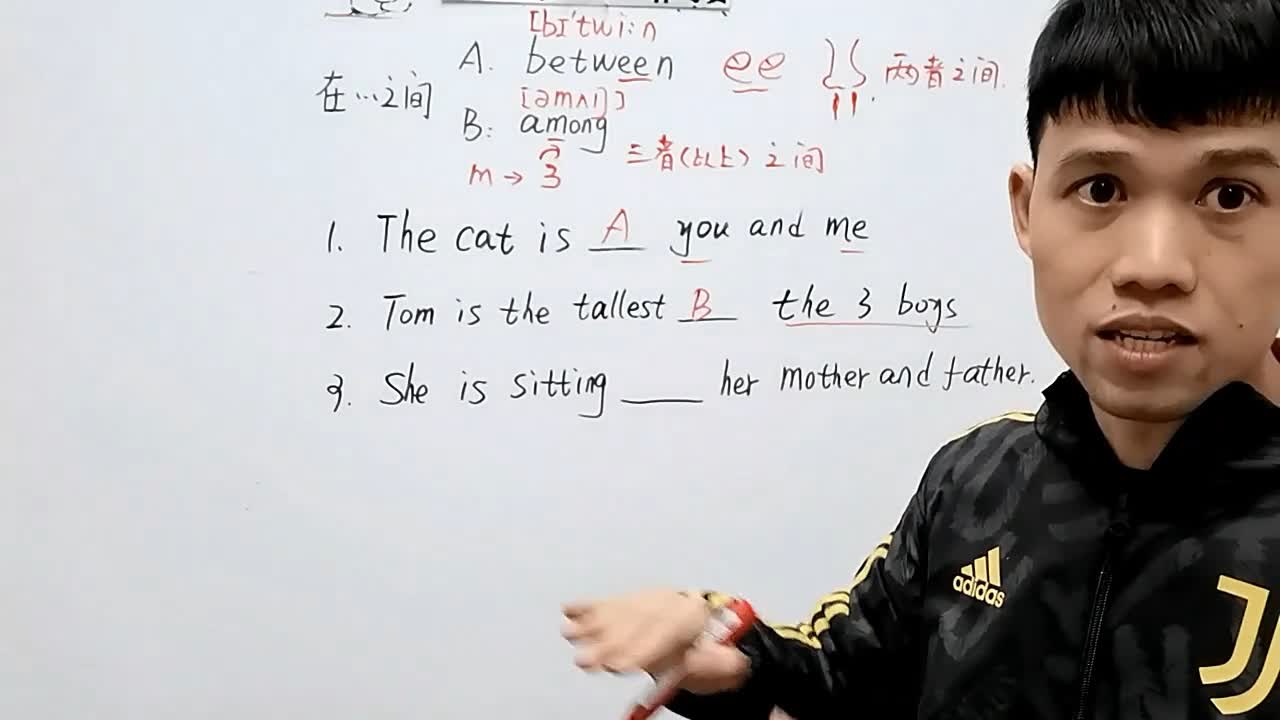 [bɪ'twi:n
A. between ee 两者之间.
在…之间
[əmʌŋ]
B: among 三者(以上)之间
m → 3
1. The cat is A you and me
2. Tom is the tallest B the 3 boys
3. She is sitting ____ her mother and father.
adidas